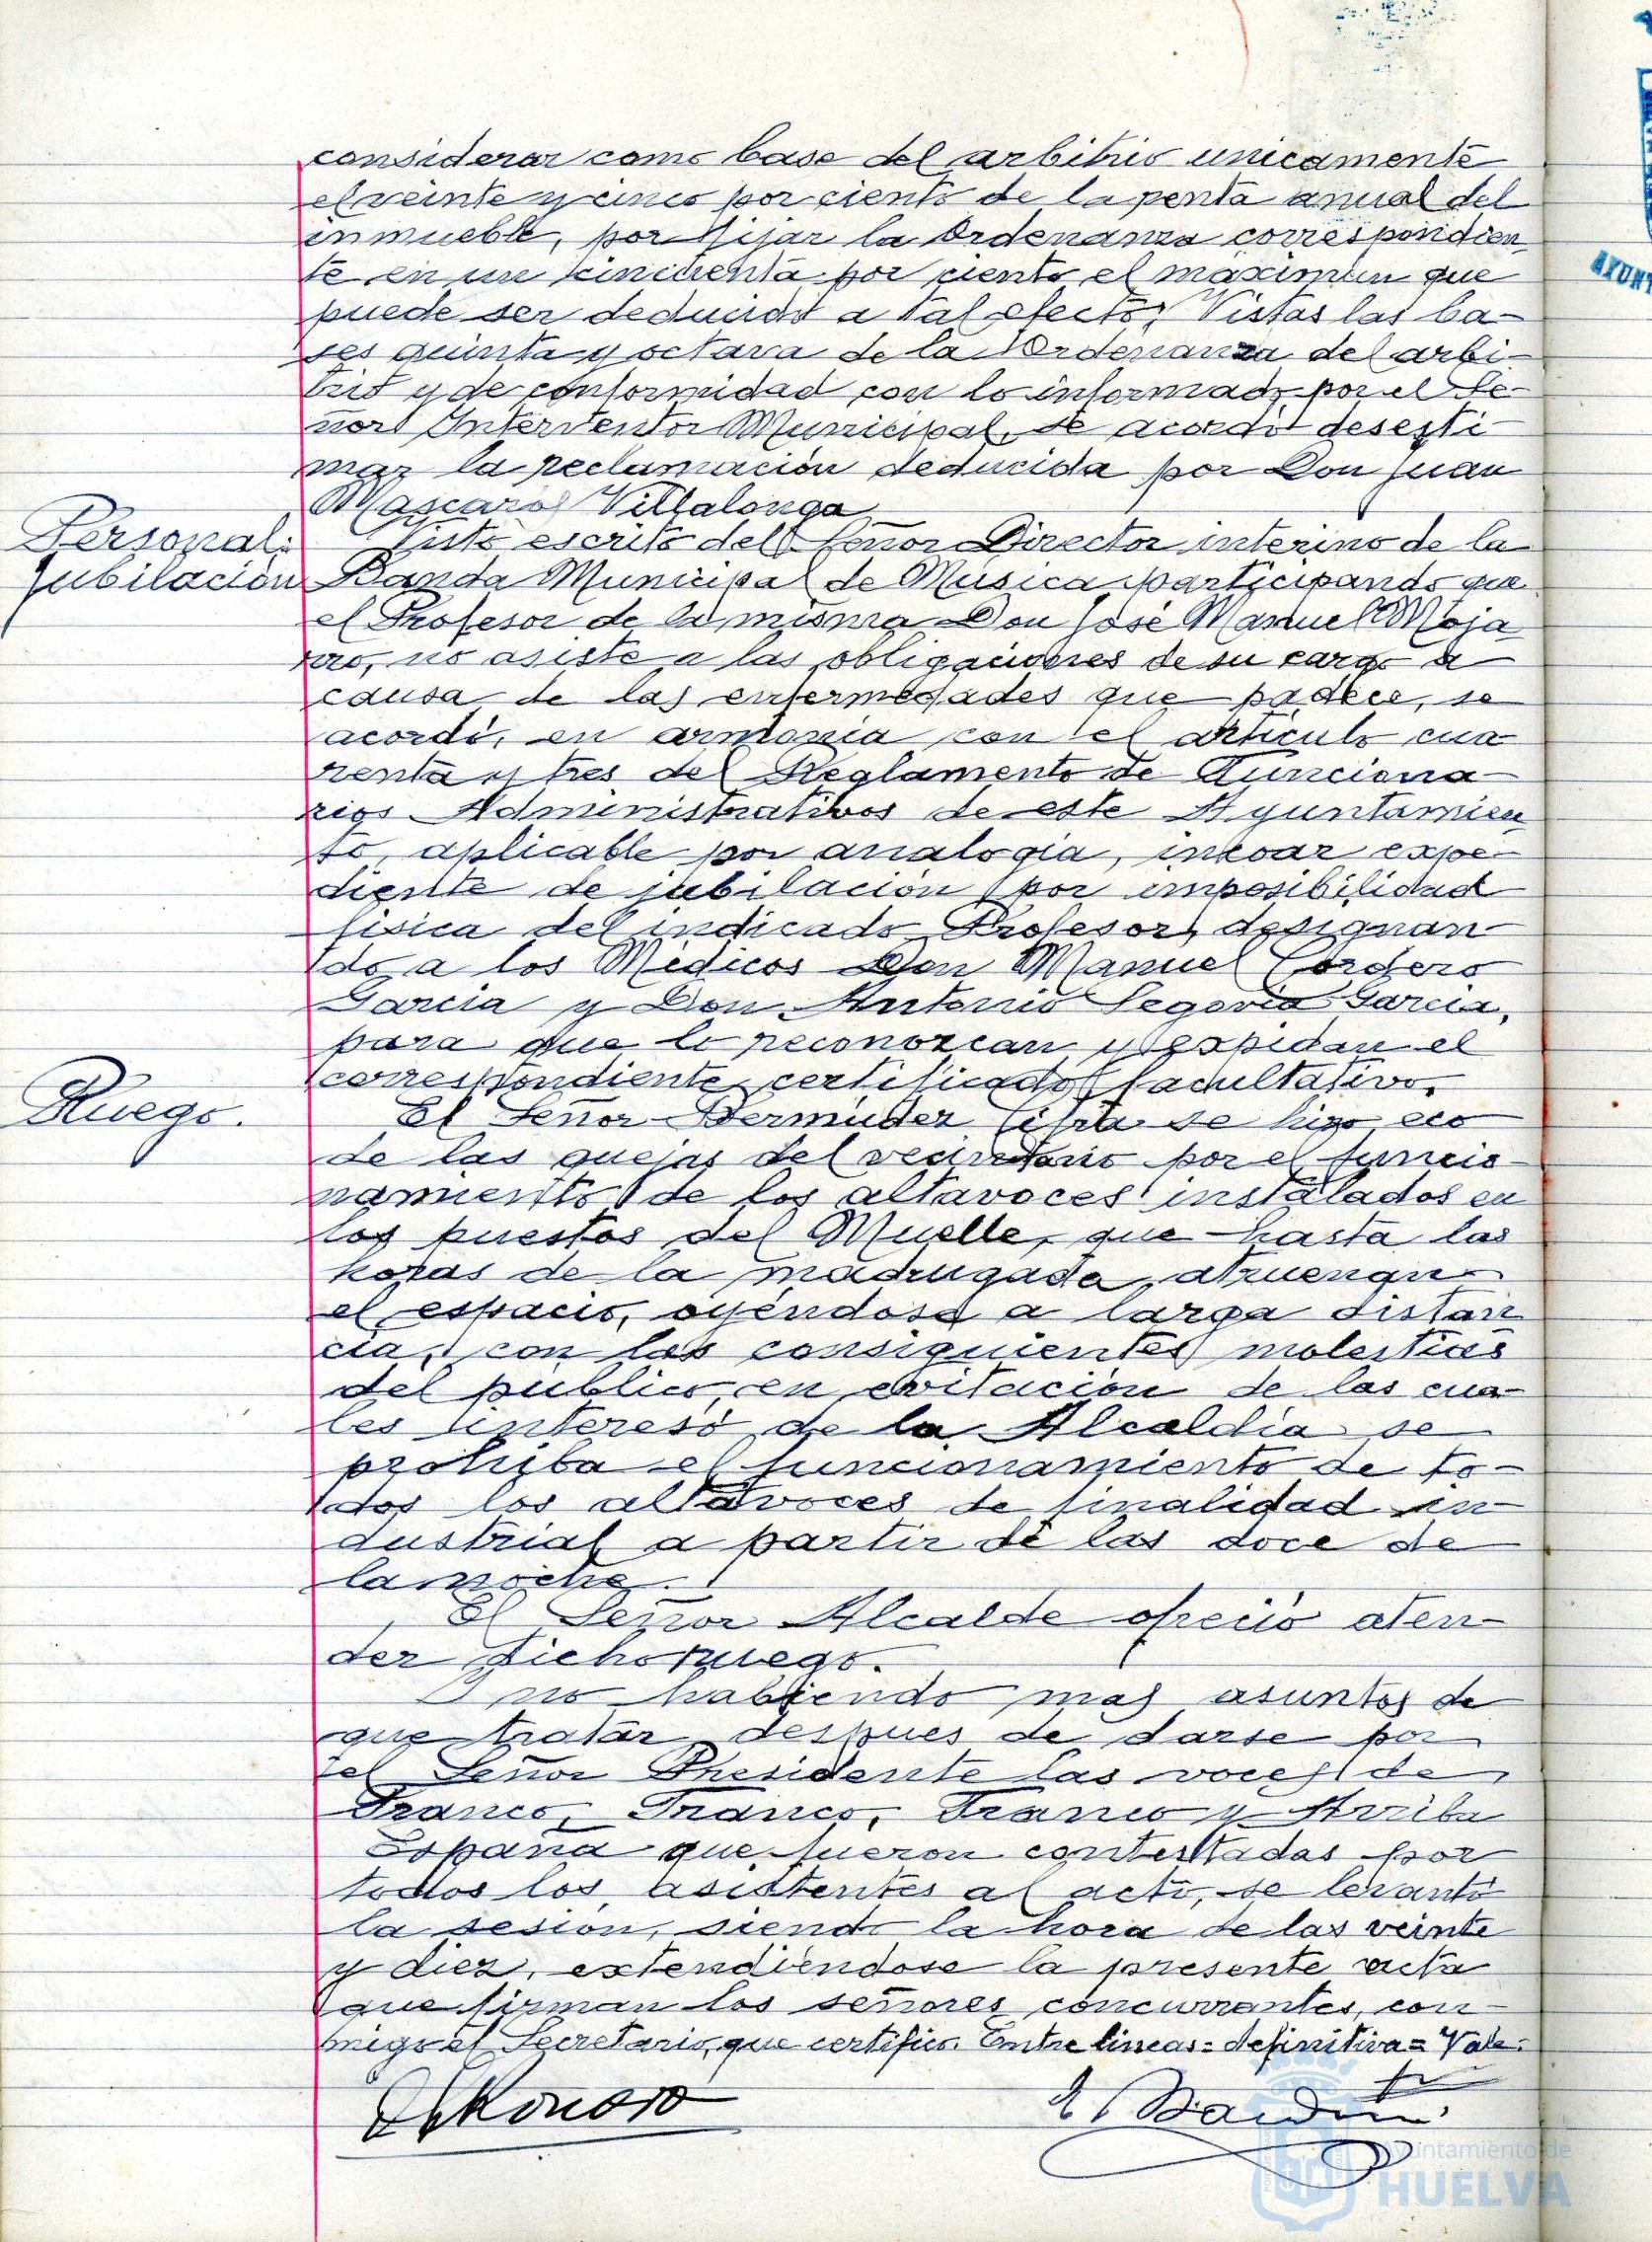 considerar como base del arbitrio unicamente
el veinte y cinco por ciento de la renta anual del
inmueble, por fijar la Ordenanza correspondien
te en un cincuenta por ciento el maximun que
puede ser deducido a tal efecto; Vistas las ba-
ses quinta y octava de la Ordenanza del arbi-
trio y de conformidad con lo informado por el Se-
ñor Interventor Municipal, se acordó desesti
mar la reclamación deducida por Don Juan
Mascaros Villalonga
Personal:
Jubilación
Visto escrito del Señor Director interino de la
Banda Municipal de Música participando que
el Profesor de la misma Don José Manuel Moja
rro, no asiste a las obligaciones de su cargo a
causa de las enfermedades que padece, se
acordó, en armonia con el articulo cua
renta y tres del Reglamento de Funciona-
rios Administrativos de este Ayuntamien
to, aplicable por analogia, incoar expe-
diente de jubilación por imposibilidad
fisica del indicado Profesor, designan-
do a los Médicos Don Manuel Cordero
Garcia y Don Antonio Segovia Garcia,
para que lo reconozcan y expidan el
correspondiente certificado facultativo.
Ruego.
El Señor Bermudez se hizo eco
de las quejas del vecindario por el funcio-
namiento de los altavoces instalados en
los puestos del Muelle, que hasta las
horas de la madrugada atruenan
el espacio, oyéndose a larga distan
cia, con las consiguientes molestias
del publico, en evitación de las cua-
les interesó de la Alcaldia se
prohiba el funcionamiento de to-
dos los altavoces de finalidad in-
dustrial a partir de las doce de
la noche.
El Señor Alcalde ofreció aten-
der dicho ruego.
Y no habiendo mas asuntos de
que tratar despues de darse por
el Señor Presidente las voces de
Franco, Franco, Franco y Arriba
España que fueron contestadas por
todos los asistentes al acto, se levantó
la sesión, siendo la hora de las veinte
y diez, extendiéndose la presente acta
que firman los señores concurrantes, con-
migo el Secretario, que certifico. Entre lineas = definitiva = Vale.
Ayuntamiento de
HUELVA